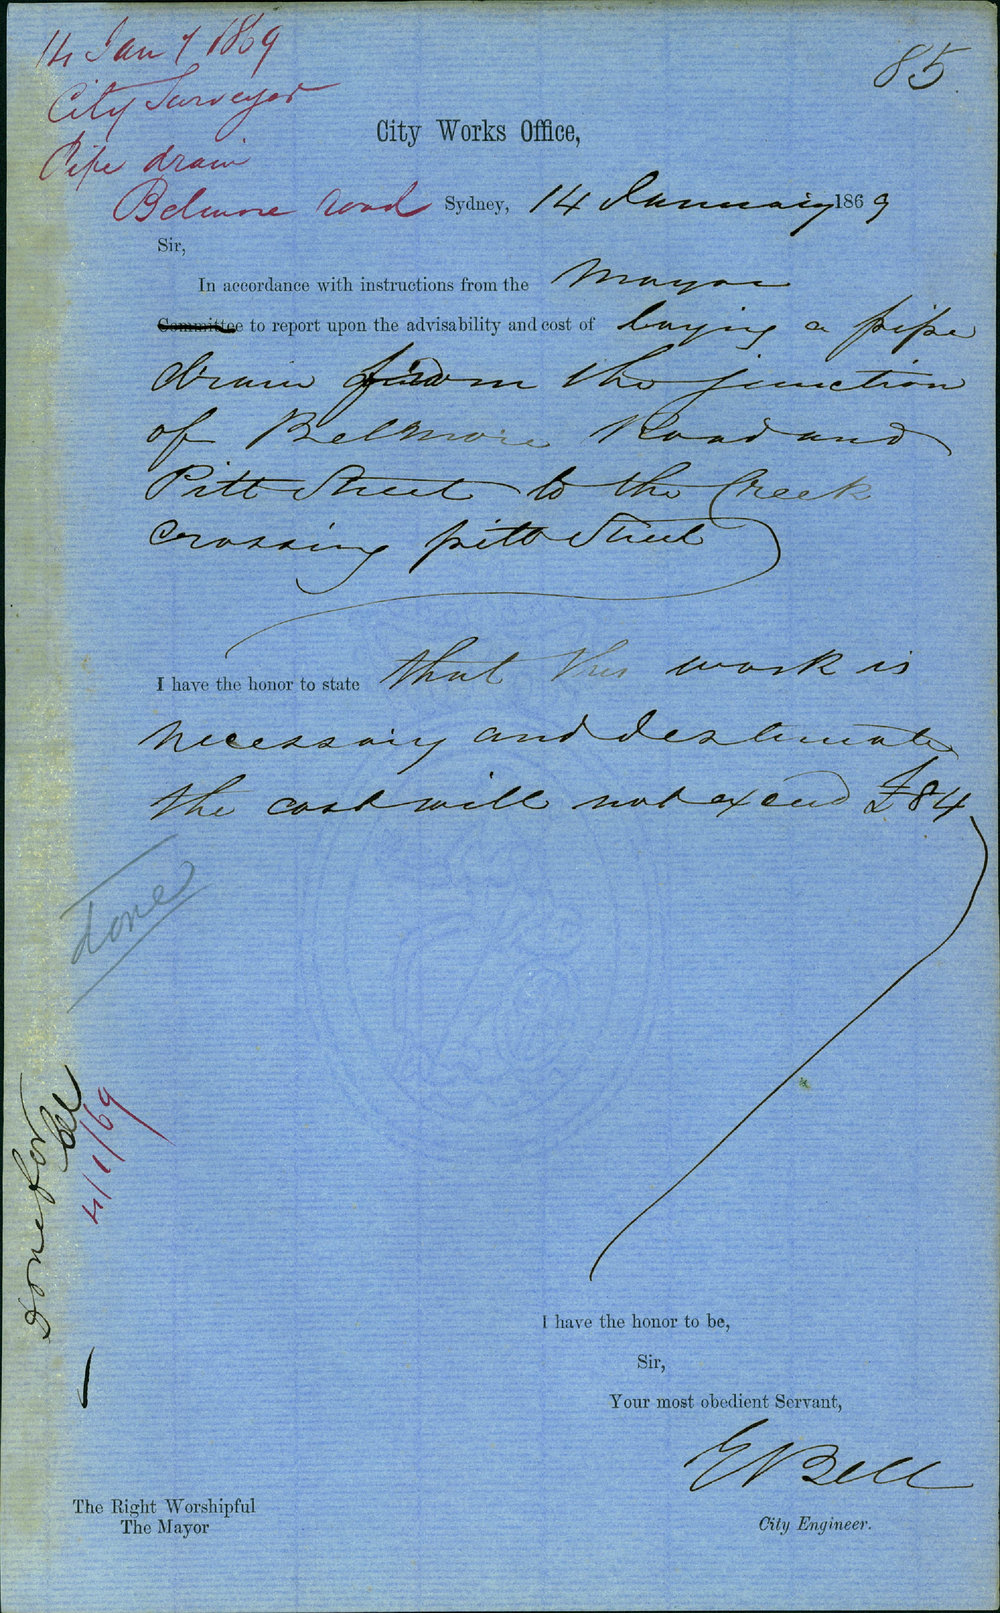 14 Jany 1869
85
City Surveyor
City Works Office,
Pipe drain
Belmore road
Sydney, 14 January 1869
Sir,
In accordance with instructions from the Mayor
Committee to report upon the advisability and cost of laying a pipe
drain from the junction
of Belmore Road and
Pitt Street to the Creek
crossing pitt Street
I have the honor to state that this work is
necessary and I estimate
the cost will not exceed £84
done
done for
4/1/69
I have the honor to be,
Sir,
Your most obedient Servant,
E Bell
The Right Worshipful
The Mayor
City Engineer.